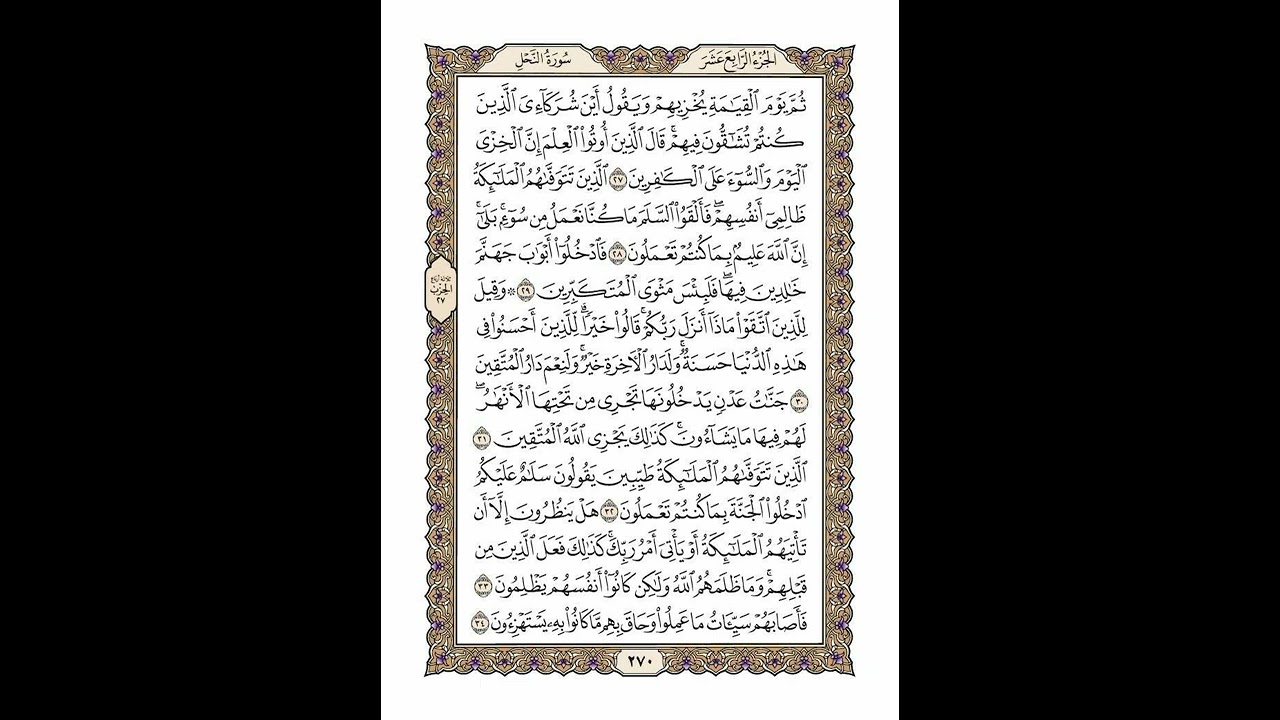 الجُزْءُ الرَّابِعَ عَشَرَ
سُورَةُ النَّحْلِ
ثُمَّ يَوْمَ ٱلْقِيَـٰمَةِ يُخْزِيهِمْ وَيَقُولُ أَيْنَ شُرَكَآءِىَ ٱلَّذِينَ
كُنتُمْ تُشَـٰٓقُّونَ فِيهِمْ ۚ قَالَ ٱلَّذِينَ أُوتُوا۟ ٱلْعِلْمَ إِنَّ ٱلْخِزْىَ
ٱلْيَوْمَ وَٱلسُّوٓءَ عَلَى ٱلْكَـٰفِرِينَ ٢٧ ٱلَّذِينَ تَتَوَفَّىٰهُمُ ٱلْمَلَـٰٓئِكَةُ
ظَالِمِىٓ أَنفُسِهِمْ ۖ فَأَلْقَوُا۟ ٱلسَّلَمَ مَا كُنَّا نَعْمَلُ مِن سُوٓءٍۭ ۚ بَلَىٰٓ
إِنَّ ٱللَّهَ عَلِيمٌۢ بِمَا كُنتُمْ تَعْمَلُونَ ٢٨ فَٱدْخُلُوٓا۟ أَبْوَٰبَ جَهَنَّمَ
خَـٰلِدِينَ فِيهَا ۖ فَلَبِئْسَ مَثْوَى ٱلْمُتَكَبِّرِينَ ٢٩ ۞ وَقِيلَ
لِلَّذِينَ ٱتَّقَوْا۟ مَاذَآ أَنزَلَ رَبُّكُمْ ۚ قَالُوا۟ خَيْرًا ۗ لِّلَّذِينَ أَحْسَنُوا۟ فِى
هَـٰذِهِ ٱلدُّنْيَا حَسَنَةٌ ۚ وَلَدَارُ ٱلْـَٔاخِرَةِ خَيْرٌ ۚ وَلَنِعْمَ دَارُ ٱلْمُتَّقِينَ
٣٠ جَنَّـٰتُ عَدْنٍ يَدْخُلُونَهَا تَجْرِى مِن تَحْتِهَا ٱلْأَنْهَـٰرُ ۖ
لَهُمْ فِيهَا مَا يَشَآءُونَ ۚ كَذَٰلِكَ يَجْزِى ٱللَّهُ ٱلْمُتَّقِينَ ٣١
ٱلَّذِينَ تَتَوَفَّىٰهُمُ ٱلْمَلَـٰٓئِكَةُ طَيِّبِينَ يَقُولُونَ سَلَـٰمٌ عَلَيْكُمُ
ٱدْخُلُوا۟ ٱلْجَنَّةَ بِمَا كُنتُمْ تَعْمَلُونَ ٣٢ هَلْ يَنظُرُونَ إِلَّآ أَن
تَأْتِيَهُمُ ٱلْمَلَـٰٓئِكَةُ أَوْ يَأْتِىَ أَمْرُ رَبِّكَ ۚ كَذَٰلِكَ فَعَلَ ٱلَّذِينَ مِن
قَبْلِهِمْ ۚ وَمَا ظَلَمَهُمُ ٱللَّهُ وَلَـٰكِن كَانُوٓا۟ أَنفُسَهُمْ يَظْلِمُونَ ٣٣
فَأَصَابَهُمْ سَيِّـَٔاتُ مَا عَمِلُوا۟ وَحَاقَ بِهِم مَّا كَانُوا۟ بِهِۦ يَسْتَهْزِءُونَ ٣٤
ثلاثة أرباع
الحزب
٢٧
٢٧٠